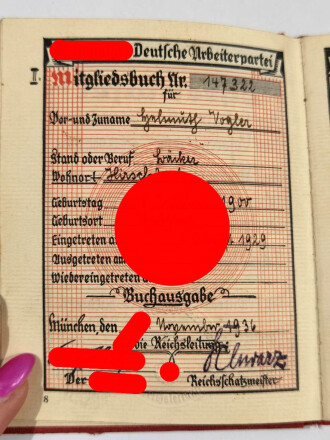 Deutsche Arbeiterpartei
I. Mitgliedsbuch Nr. 147322
für
Vor- und Zuname Helmuth Vogler
Stand oder Beruf Bäcker
Wohnort
Geburtstag 1900
Geburtsort
Eingetreten am 1929
Ausgetreten am
Wiedereingetreten
Buchausgabe
München, den November 1936
die Reichsleitung
Schwarz
Der Reichsschatzmeister
8